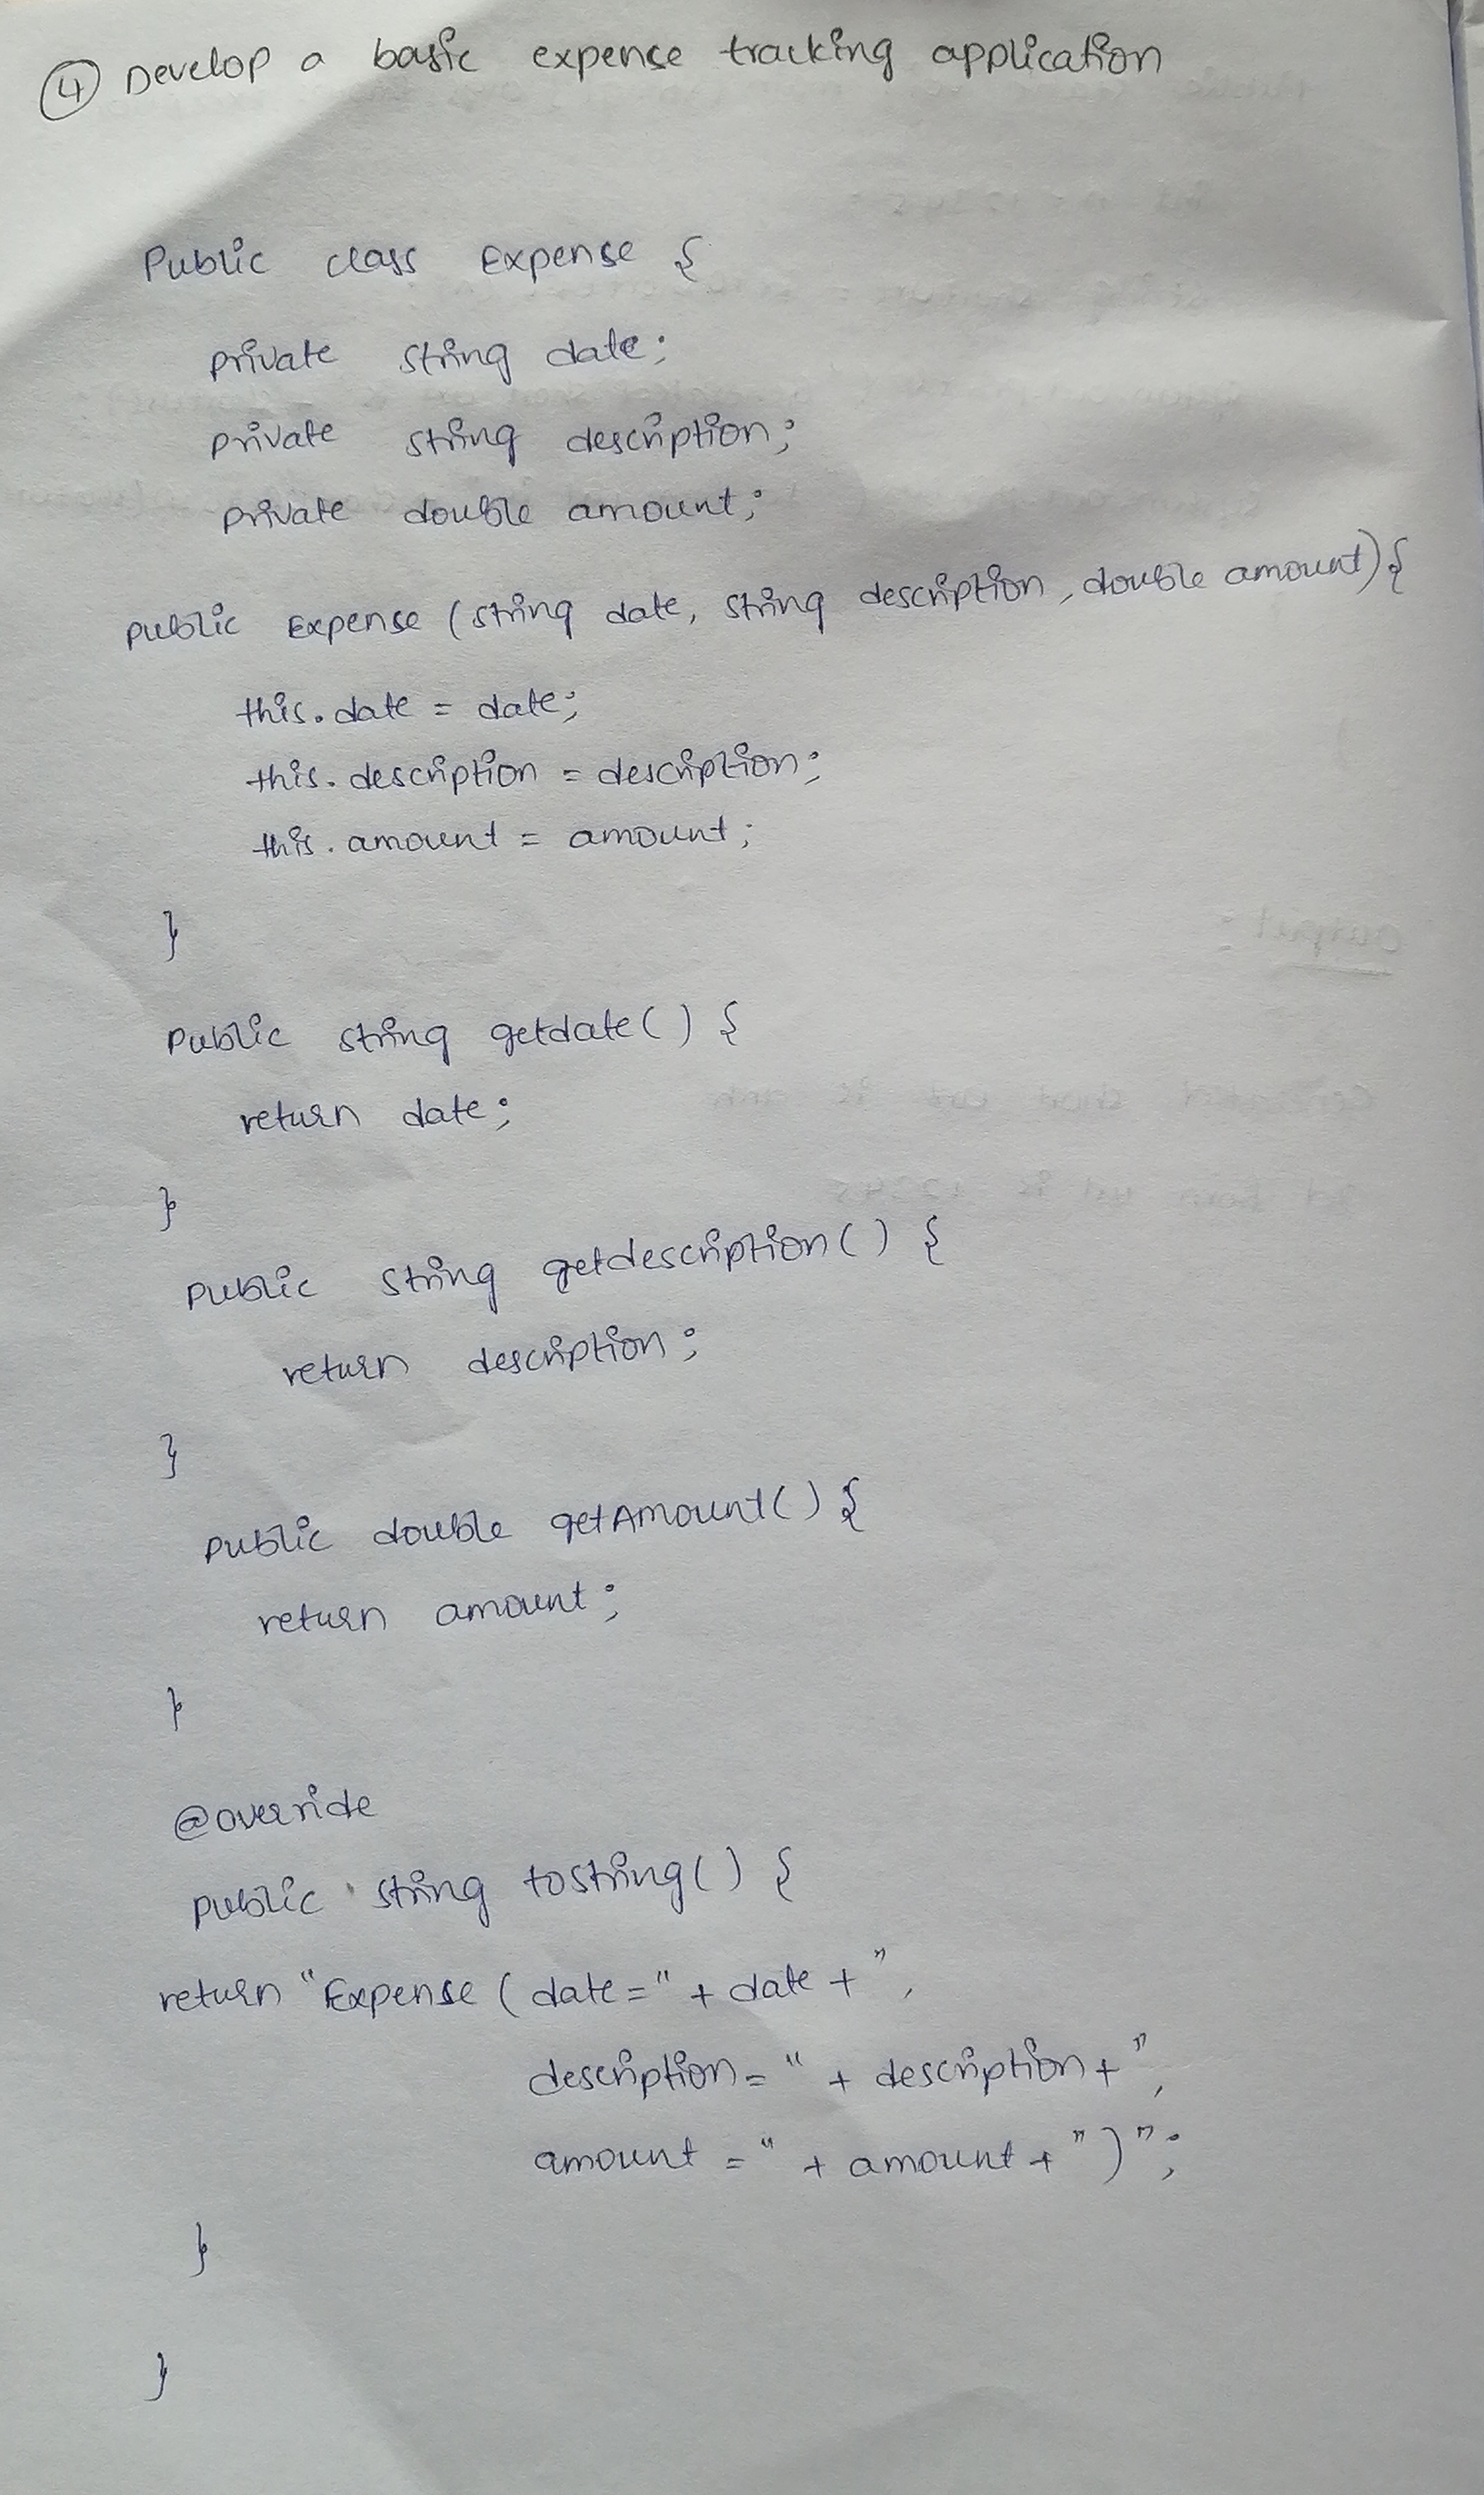 ④ Develop a basic expense tracking application
Public class Expense {
private string date;
private string description;
private double amount;
public Expense (string date, string description, double amount) {
this.date = date;
this.description = description;
this.amount = amount;
}
Public string getdate() {
return date;
}
public string getdescription() {
return description;
}
public double getAmount() {
return amount;
}
@override
public string tostring() {
return "Expense (date=" + date + ",
description=" + description + ",
amount =" + amount + ")";
}
}